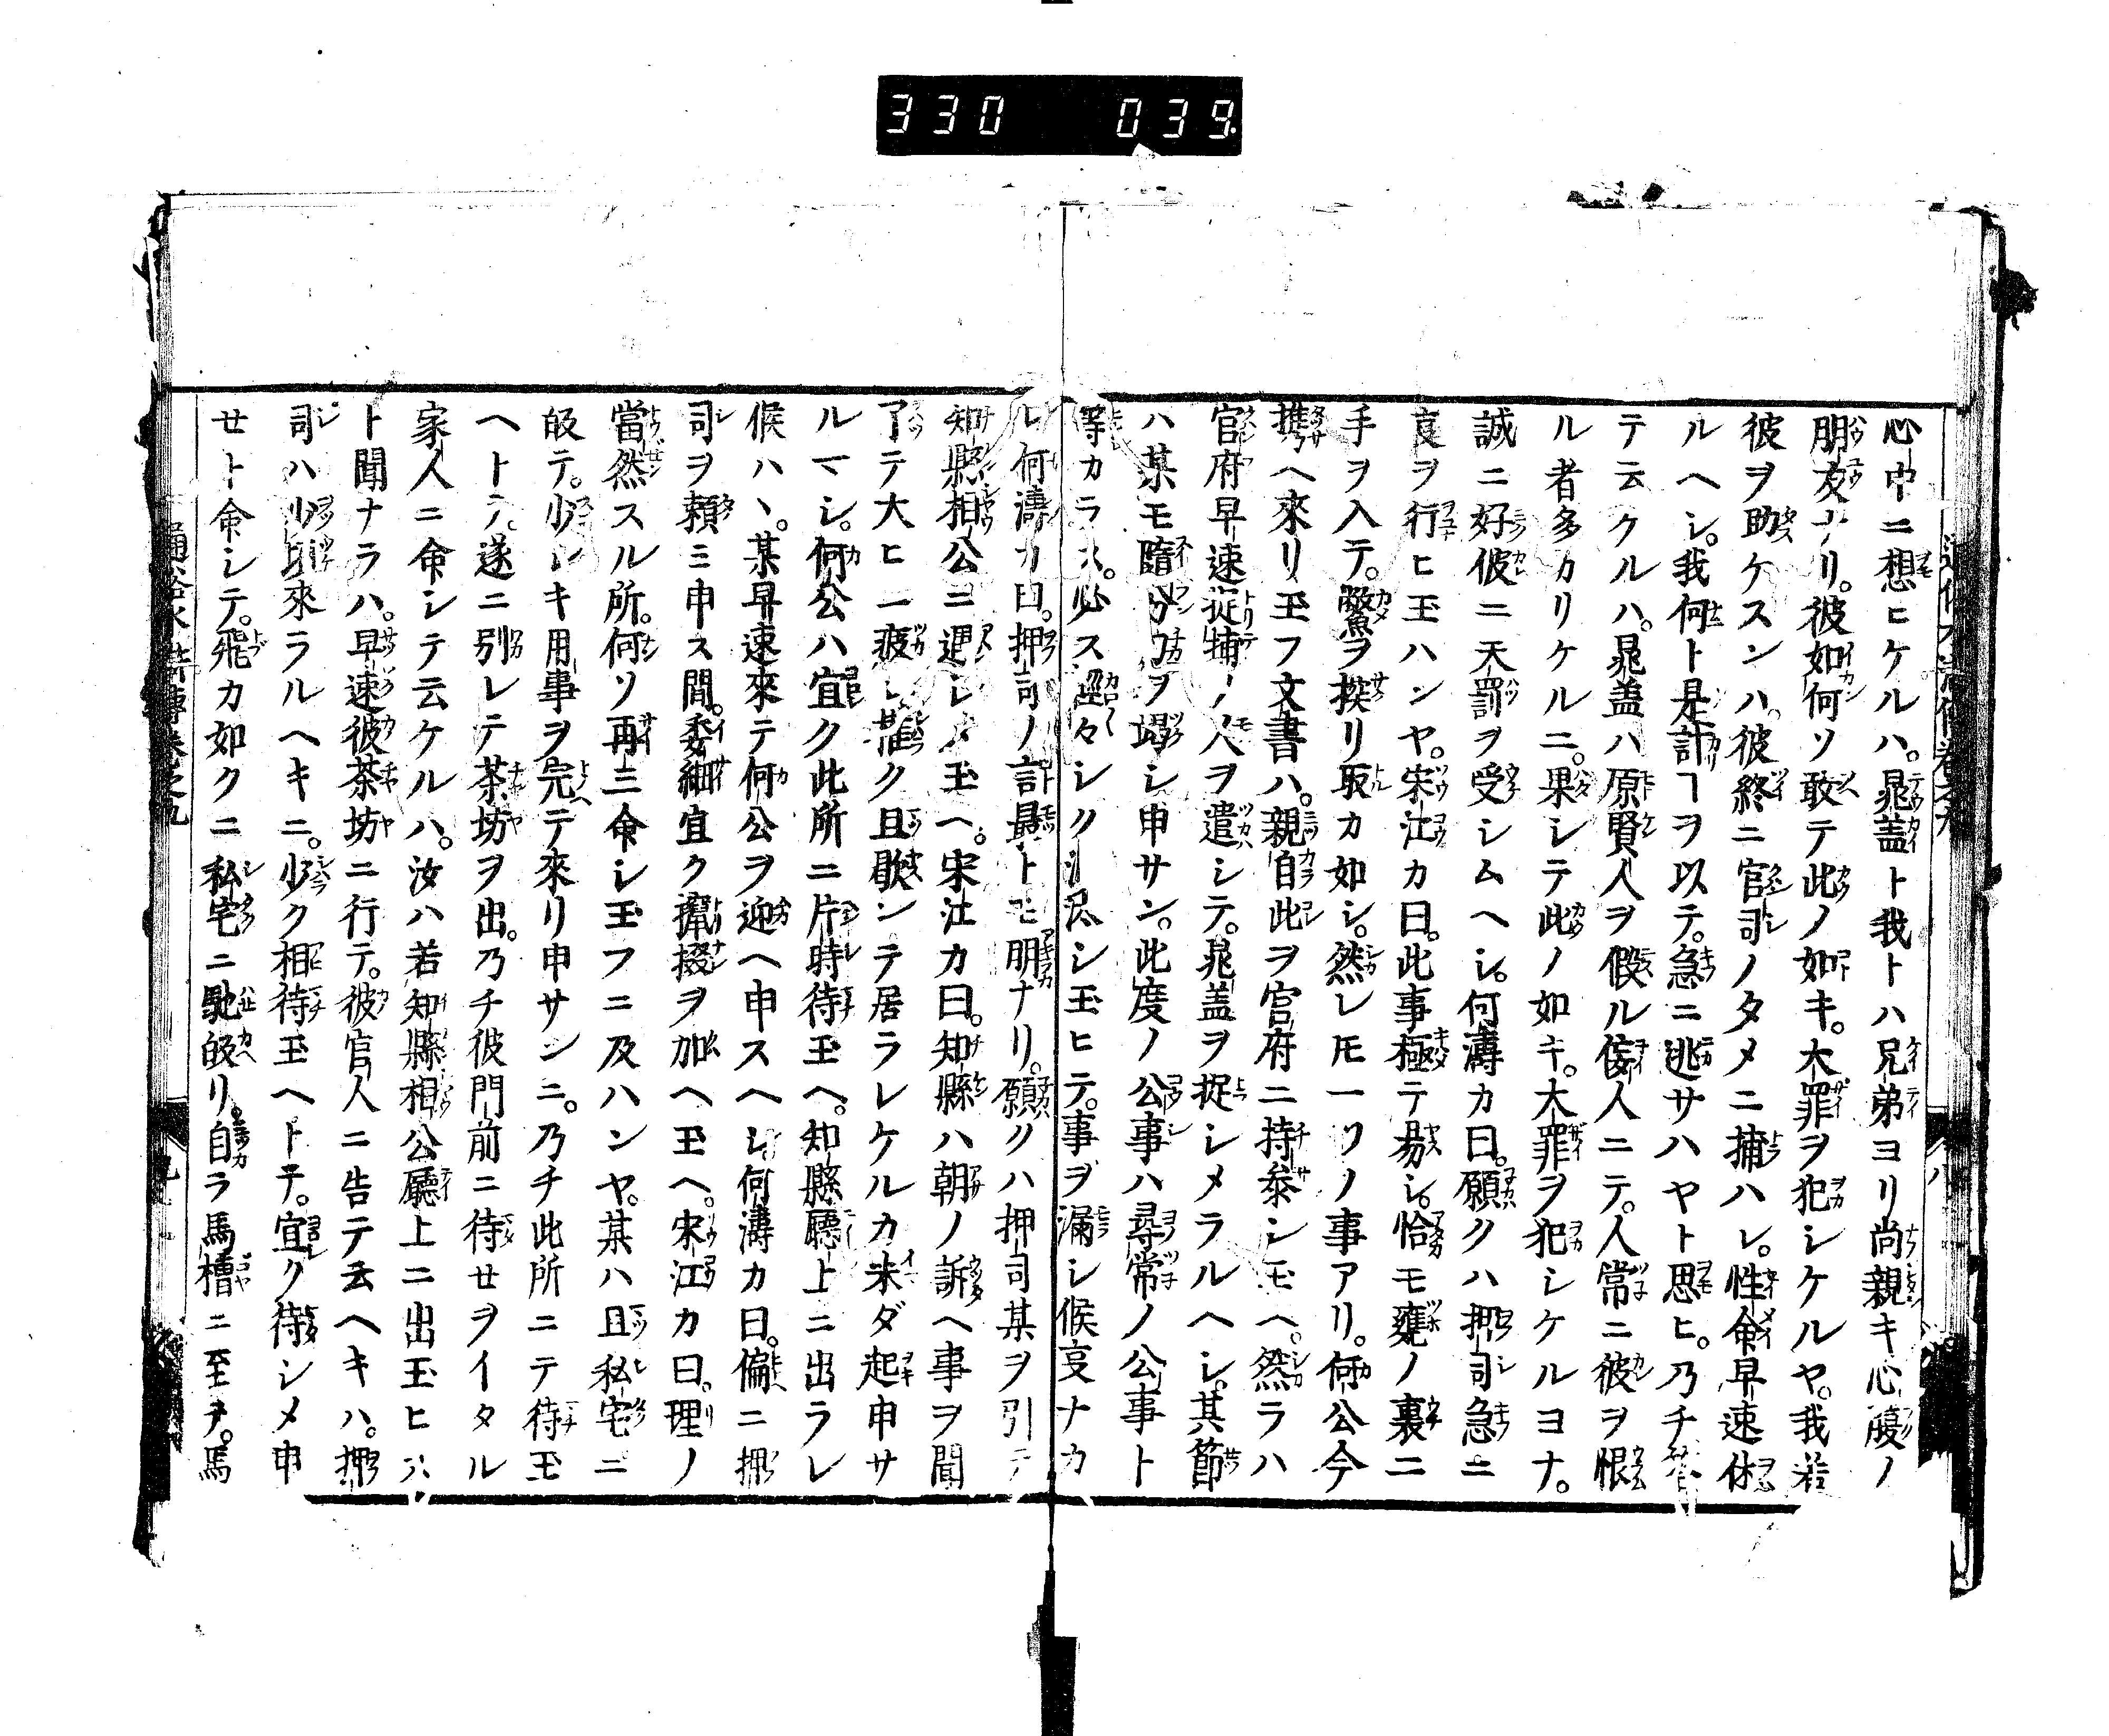 330 039.
心中ニ想ヒケルハ。晁盖ト我トハ兄弟ヨリ尚親キ心腹ノ
朋友ナリ。彼如何ソ敢テ此ノ如キ。大罪ヲ犯シケルヤ。我若
彼ヲ助ケスンハ。彼終ニ官司ノタメニ捕ハレ。性命早速休
ルヘシ。我何ト是計ヿヲ以テ。急ニ逃サハヤト思ヒ。乃チ
テ云クルハ。晁盖ハ原賢人ヲ假ル侫人ニテ。人常ニ彼ヲ恨
ル者多カリケルニ。果シテ此ノ如キ。大罪ヲ犯シケルヨナ。
誠ニ好彼ニ天罰ヲ受シムヘシ。何濤カ曰。願クハ押司急ニ
叓ヲ行ヒ玉ハンヤ。宋江カ曰。此事極テ易シ。恰モ甕ノ裏ニ
手ヲ入テ。鱉ヲ探リ取カ如シ。然レ𪜈一ツノ事アリ。何公今
携ヘ來リ玉フ文書ハ。親自此ヲ官府ニ持参シ玉ヘ。然ラハ
官府早速捉捕ノ人ヲ遣シテ。晁盖ヲ捉シメラルヘシ。其節
ハ某モ隨分力ヲ竭シ申サン。此度ノ公事ハ尋常ノ公事ト
等カラス。必ス輕々シク シ玉ヒテ。事ヲ漏シ候叓ナカ
ル何濤カ曰。押司ノ言最トモ明ナリ。願クハ押司某ヲ引テ
知縣相公ニ遇シメ玉ヘ。宋江カ曰。知縣ハ朝ノ訴ヘ事ヲ聞
了テ大ヒニ疲レ暫ク且歇ンテ居ラレケルカ未ダ起申サ
ルマシ。何公ハ宜ク此所ニ片時待玉ヘ。知縣廳上ニ出ラレ
候ハヽ。某早速來テ何公ヲ迎ヘ申スヘシ何濤カ曰。偏ニ押
司ヲ頼ミ申ス間。委細宜ク攛掇ヲ加ヘ玉ヘ。宋江カ曰。理ノ
當然スル所。何ソ再三命シ玉フニ及ハンヤ。某ハ且私宅ニ
皈テ。少シキ用事ヲ完テ來リ申サンニ。乃チ此所ニテ待玉
ヘトテ。遂ニ引レテ茶坊ヲ出。乃チ彼門前ニ待セヲイタル
家人ニ命シテ云ケルハ。汝ハ若知縣相公廳上ニ出玉ヒ
ト聞ナラハ。早速彼茶坊ニ行テ。彼官人ニ告テ云ヘキハ。押
司ハ少頃來ラルヘキニ。少ク相待玉ヘトテ。宜ク待シメ申
セト命シテ。飛カ如クニ私宅ニ馳皈リ。自ラ馬槽ニ至テ。馬